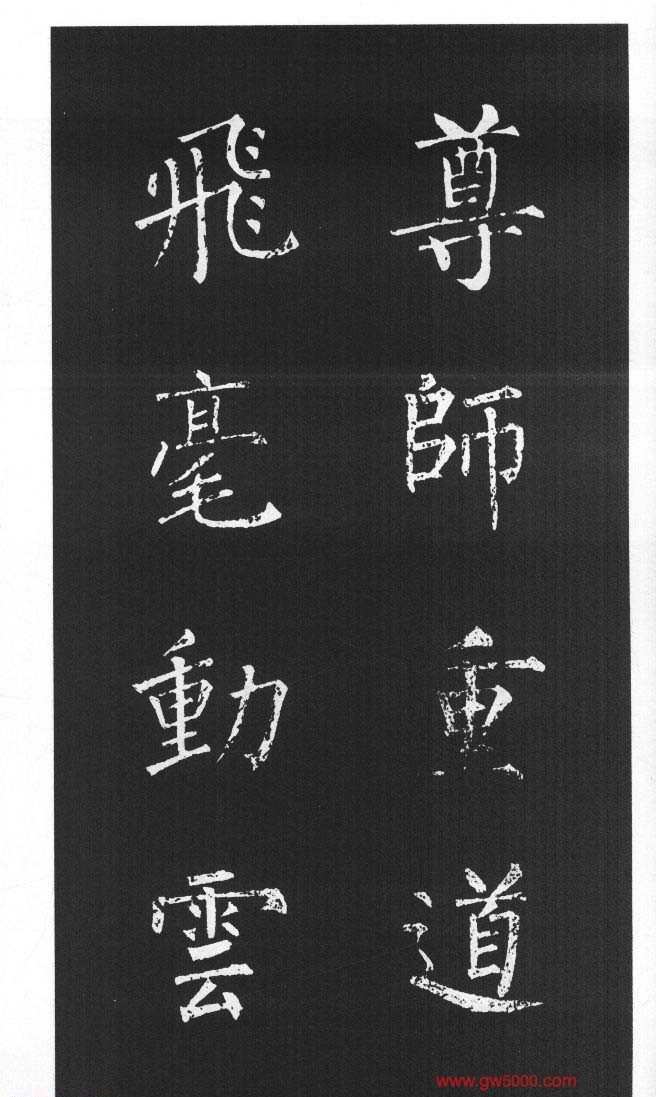 尊師重道
飛毫動雲
www.gw5000.com